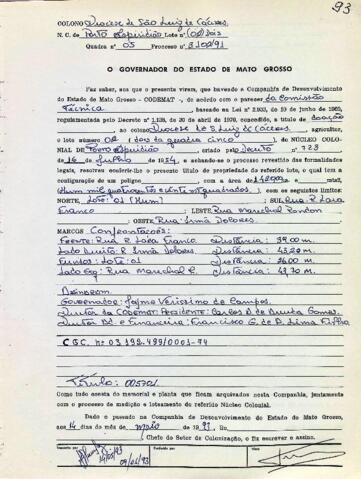 93
COLONO Diocese de São Luiz de Cáceres
N. C. de Porto Esperidião Lote nº 02 (dois)
Quadra nº 05 Processo nº
O GOVERNADOR DO ESTADO DE MATO GROSSO
Faz saber, aos que o presente virem, que havendo a Companhia de Desenvolvimento
do Estado de Mato Grosso - CODEMAT -, de acordo com o parecer da Comissão
Técnica, baseado na Lei nº 2.933, de 10 de junho de 1969,
regulamentada pelo Decreto nº 1.138, de 20 de abril de 1970, concedido, a título de doação
ao colono Diocese de S. Luiz de Cáceres, agricultor,
o lote número 02 (dois) da quadra cinco), do NÚCLEO COLO-
NIAL DE Porto Esperidião, criado pelo Decreto nº 723
de 16 de Julho de 1954, e achando-se o processo revestido das formalidades
legais, resolveu conferir-lhe o presente título de propriedade do referido lote, o qual tem a
configuração de um polígono com a área de
(Hum mil quatrocentos), com os seguintes limites:
NORTE, Lote: 01 (Hum); SUL Rua: P. Lara
Franco; LESTE: Rua Marechal Rondon
; OESTE: Rua: Irmã Dolores.
MARCOS Confrontações:
Frente: Rua P. Lara Franco Distância: 39,00 m.
Lado Direito: R. Irmã Dolores. Distância: 43,20 m.
Fundos: Lote: 01 Distância: 36,00 m.
Lado Esq: Rua Marechal R. Distância: 43,70 m.
Assinaram
Governador: Jayme Veríssimo de Campos.
Diretor da CODEMAT: Presidente: Carlos A. de Gomes.
Diretor Ad. e Financeira: Francisco G. de A. Lima Filho
C.G.C. Nº 03.198.499/0001-74
Título: 005701.
Como tudo consta do memorial e planta que ficam arquivados nesta Companhia, juntamente
com o processo de medição e loteamento do referido Núcleo Colonial.
Dado e passado na Companhia de Desenvolvimento do Estado de Mato Grosso,
aos 14 dias do mês de maio de 1991. Eu
Chefe do Setor de Colonização, o fiz escrever e assino.
Expedido por
14/05/93